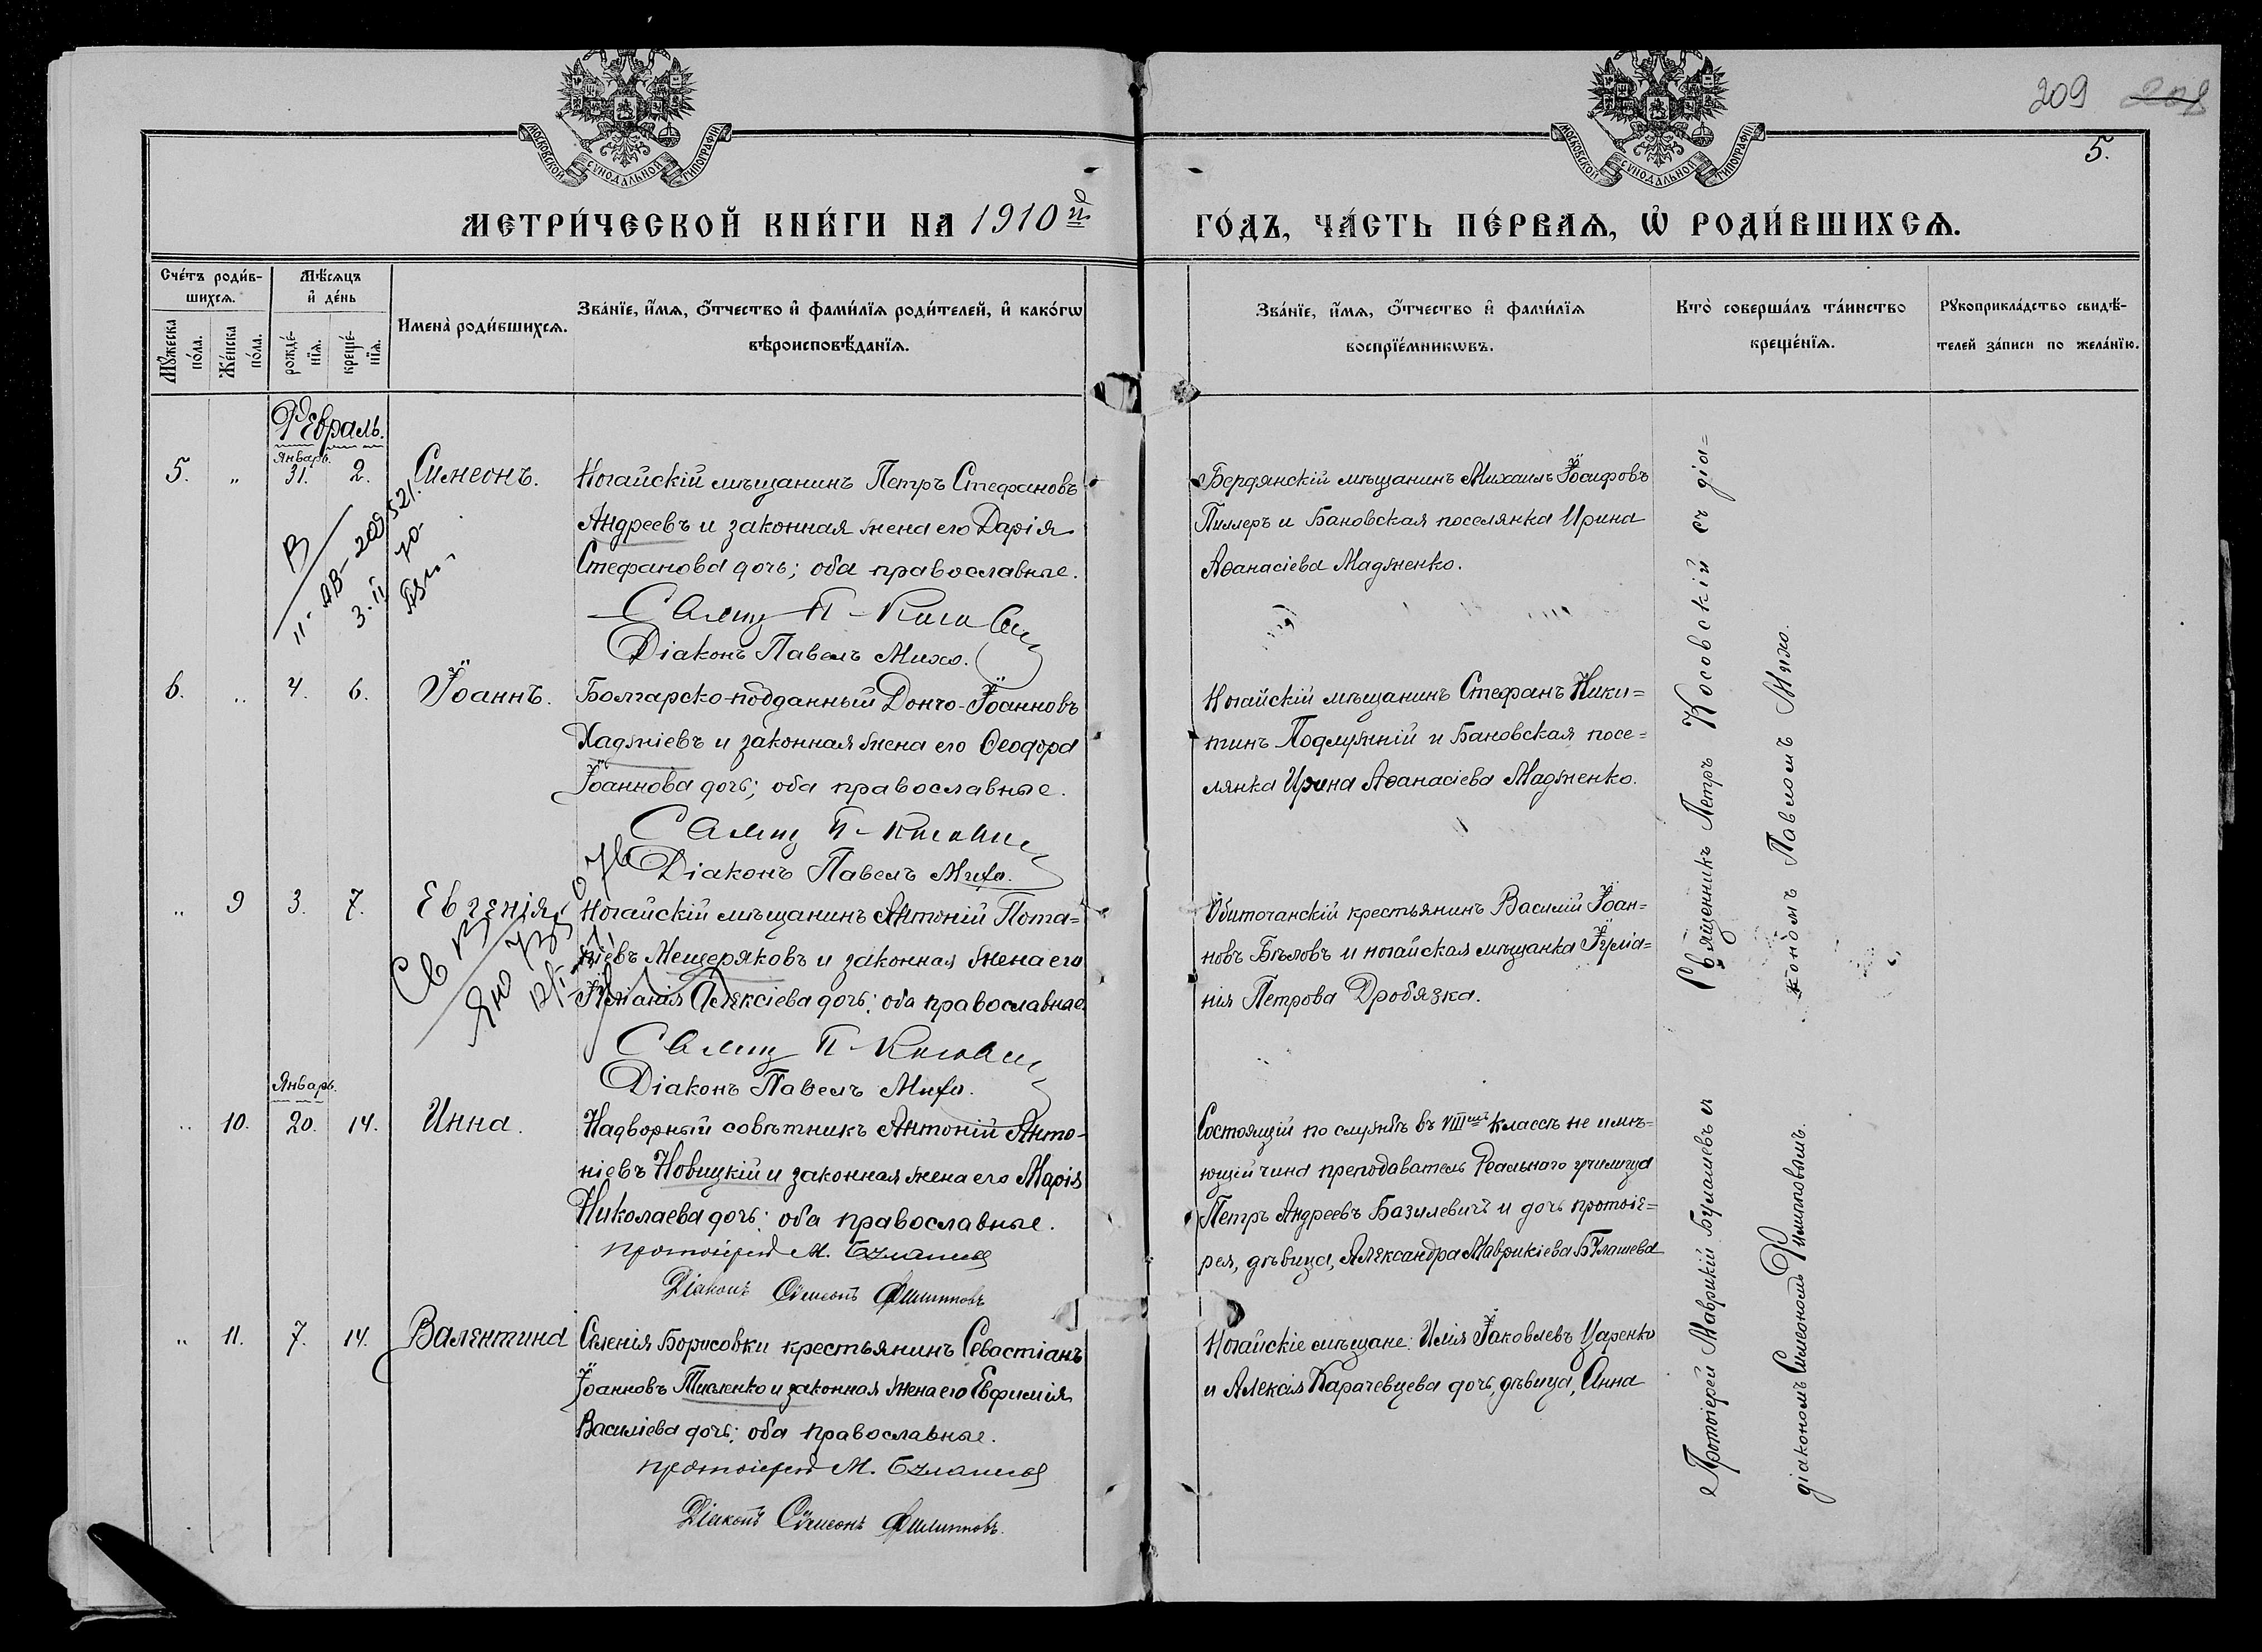 209 208
5.
МОСКОВСКОЙ СУНОДАЛЬНОЙ ТИПОГРАФІИ
МОСКОВСКОЙ СУНОДАЛЬНОЙ ТИПОГРАФІИ
МЕТРИ́ЧЕСКОЙ КНИ́ГИ НА 1910й ГО́ДЪ, ЧА́СТЬ ПЕ́РВАѦ, Ѡ҆ РОДИ́ВШИХСѦ.
Сче́тъ роди́в-
шихсѧ.
Мꙋ́жеска
по́ла.
Же́нска
по́ла.
Мѣ́сѧцъ
и҆ де́нь
рожде́-
нїѧ.
креще́-
нїѧ.
Имена̀ роди́вшихсѧ.
Зва́нїе, и҆́мѧ, ѻ҆́тчество и҆ фами́лїѧ роди́телей, и҆ како́гѡ
вѣроисповѣ́данїѧ.
Зва́нїе, и҆́мѧ, ѻ҆́тчество и҆ фами́лїѧ
воспрїе́мникѡвъ.
Кто̀ соверша́лъ та́инство
креще́нїѧ.
Рꙋкоприкла́дство свидѣ́-
телей за́писи по жела́нїю.
Февраль.
Январь.
5. „ 31. 2. Симеонъ.
Ногайскій мѣщанинъ Петръ Стефановъ
Андреевъ и законная жена его Дарія
Стефанова дочь; оба православные.
Діаконъ Павелъ Михо.
Бердянскій мѣщанинъ Михаилъ Іосифовъ
Пиллеръ и Бановская поселянка Ирина
Аѳанасіева Мадженко.
6. „ 4. 6. Іоаннъ.
Болгарско-подданный Дончо-Іоанновъ
Хаджіевъ и законная жена его Ѳеодора
Іоаннова дочь; оба православные.
Діаконъ Павелъ Михо.
Ногайскій мѣщанинъ Стефанъ Ники=
тинъ Подлужній и Бановская посе=
лянка Ирина Аѳанасіева Мадженко.
„ 9 3. 7. Евгенія.
Ногайскій мѣщанинъ Антоній Пота=
піевъ Мещеряковъ и законная жена его
Алексіева дочь; оба православные.
Діаконъ Павелъ Михо.
Обиточанскій крестьянинъ Василій Іоан=
новъ Бѣловъ и ногайская мѣщанка Іуліа=
нія Петрова Дробязка.
Священникъ Петръ Косовскій съ діа=
кономъ Павломъ Михо.
Январь.
„ 10. 20. 14. Инна.
Надворный совѣтникъ Антоній Анто-
ніевъ Новицкій и законная жена его Марія
Николаева дочь; оба православные.
протоіерей М. Булашевъ
Діаконъ Сѵмеонъ Филипповъ
Состоящій по службѣ въ VIIIмъ классѣ не имѣ=
ющій чина преподаватель Реальнаго училища
Петръ Андреевъ Базилевичъ и дочь протоіе=
рея, дѣвица, Александра Маврикіева Булашева
„ 11. 7. 14. Валентина
Селенія Борисовки крестьянинъ Севастіанъ
Іоанновъ Тисленко и законная жена его Евфимія
Василіева дочь; оба православные.
протоіерей М. Булашевъ
Діаконъ Сѵмеонъ Филипповъ.
Ногайскіе мѣщане: Илія Іаковлевъ Царенко
и Алексія Карачевцева дочь, дѣвица, Анна
Протоіерей Маврикій Булашевъ съ
діакономъ Симеономъ Филипповымъ.